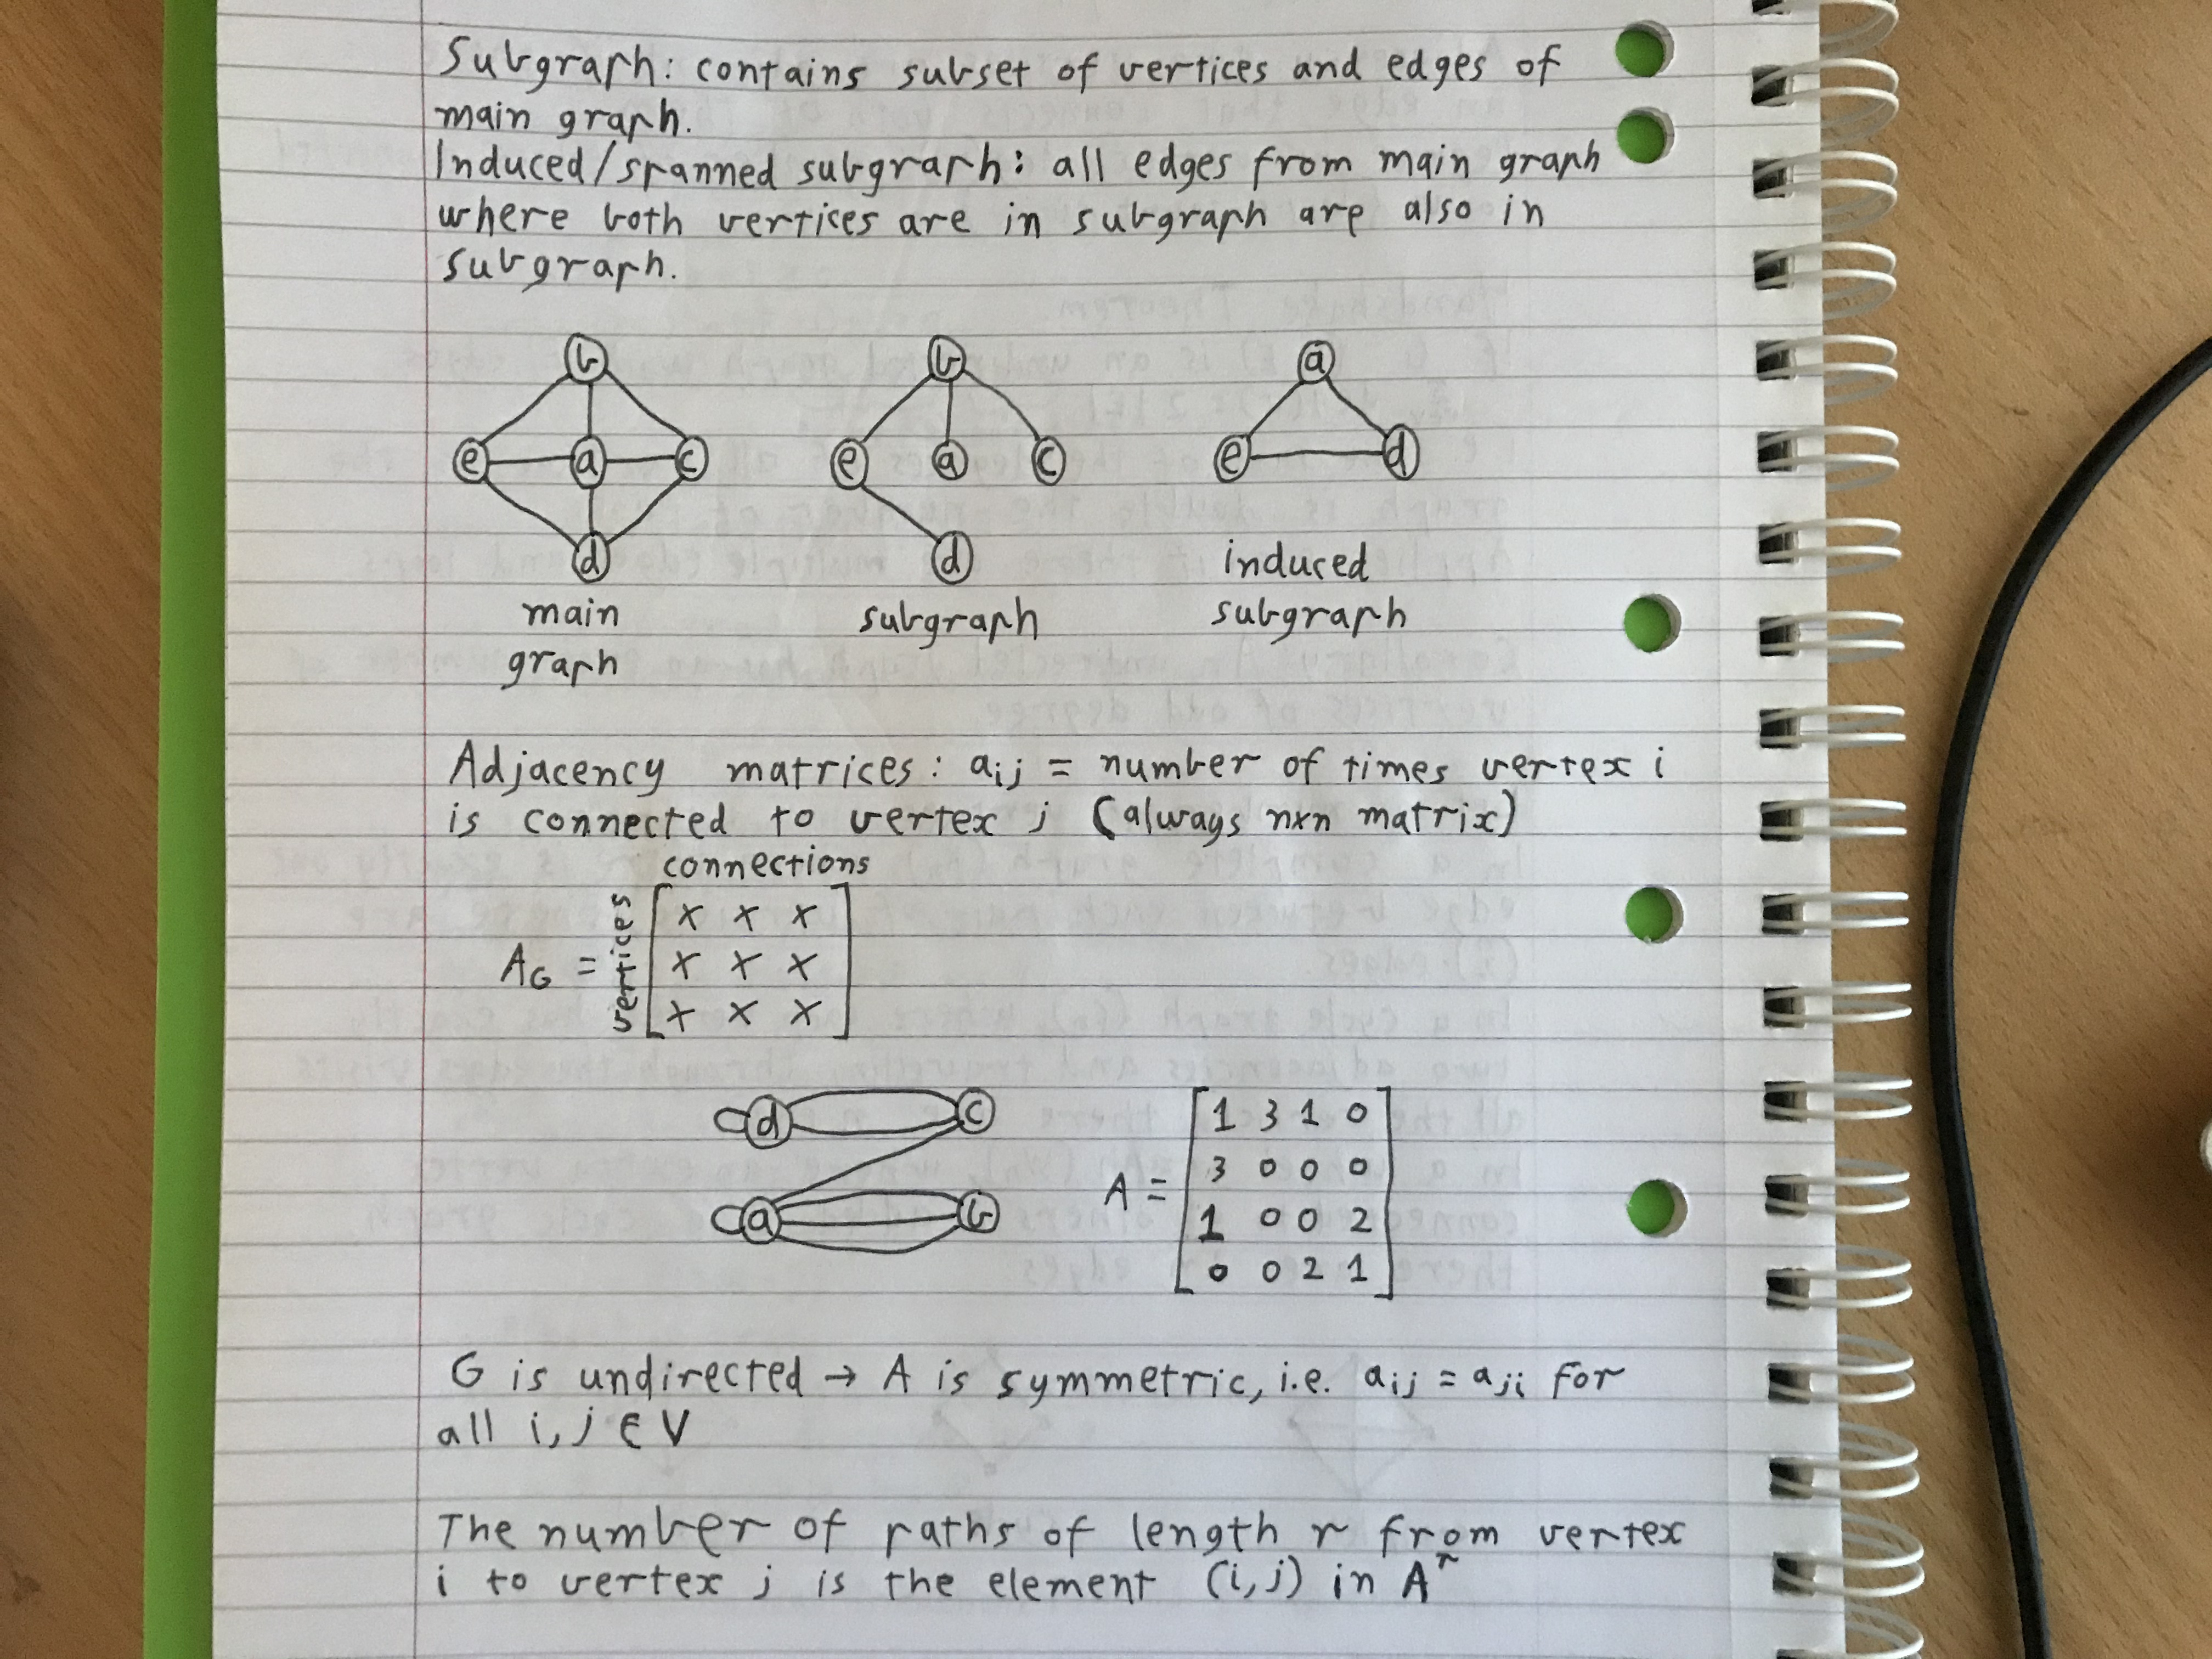 Subgraph: contains subset of vertices and edges of
main graph.
Induced/spanned subgraph: all edges from main graph
where both vertices are in subgraph are also in
subgraph.
b b a
e a c e a c e d
d d
induced
main subgraph subgraph
graph
Adjacency matrices: aij = number of times vertex i
is connected to vertex j (always n×n matrix)
connections
AG = vertices [x x x
x x x
x x x]
d c
a b
A = [1 3 1 0
3 0 0 0
1 0 0 2
0 0 2 1]
G is undirected → A is symmetric, i.e. aij = aji for
all i, j ∈ V
The number of paths of length r from vertex
i to vertex j is the element (i,j) in A^r